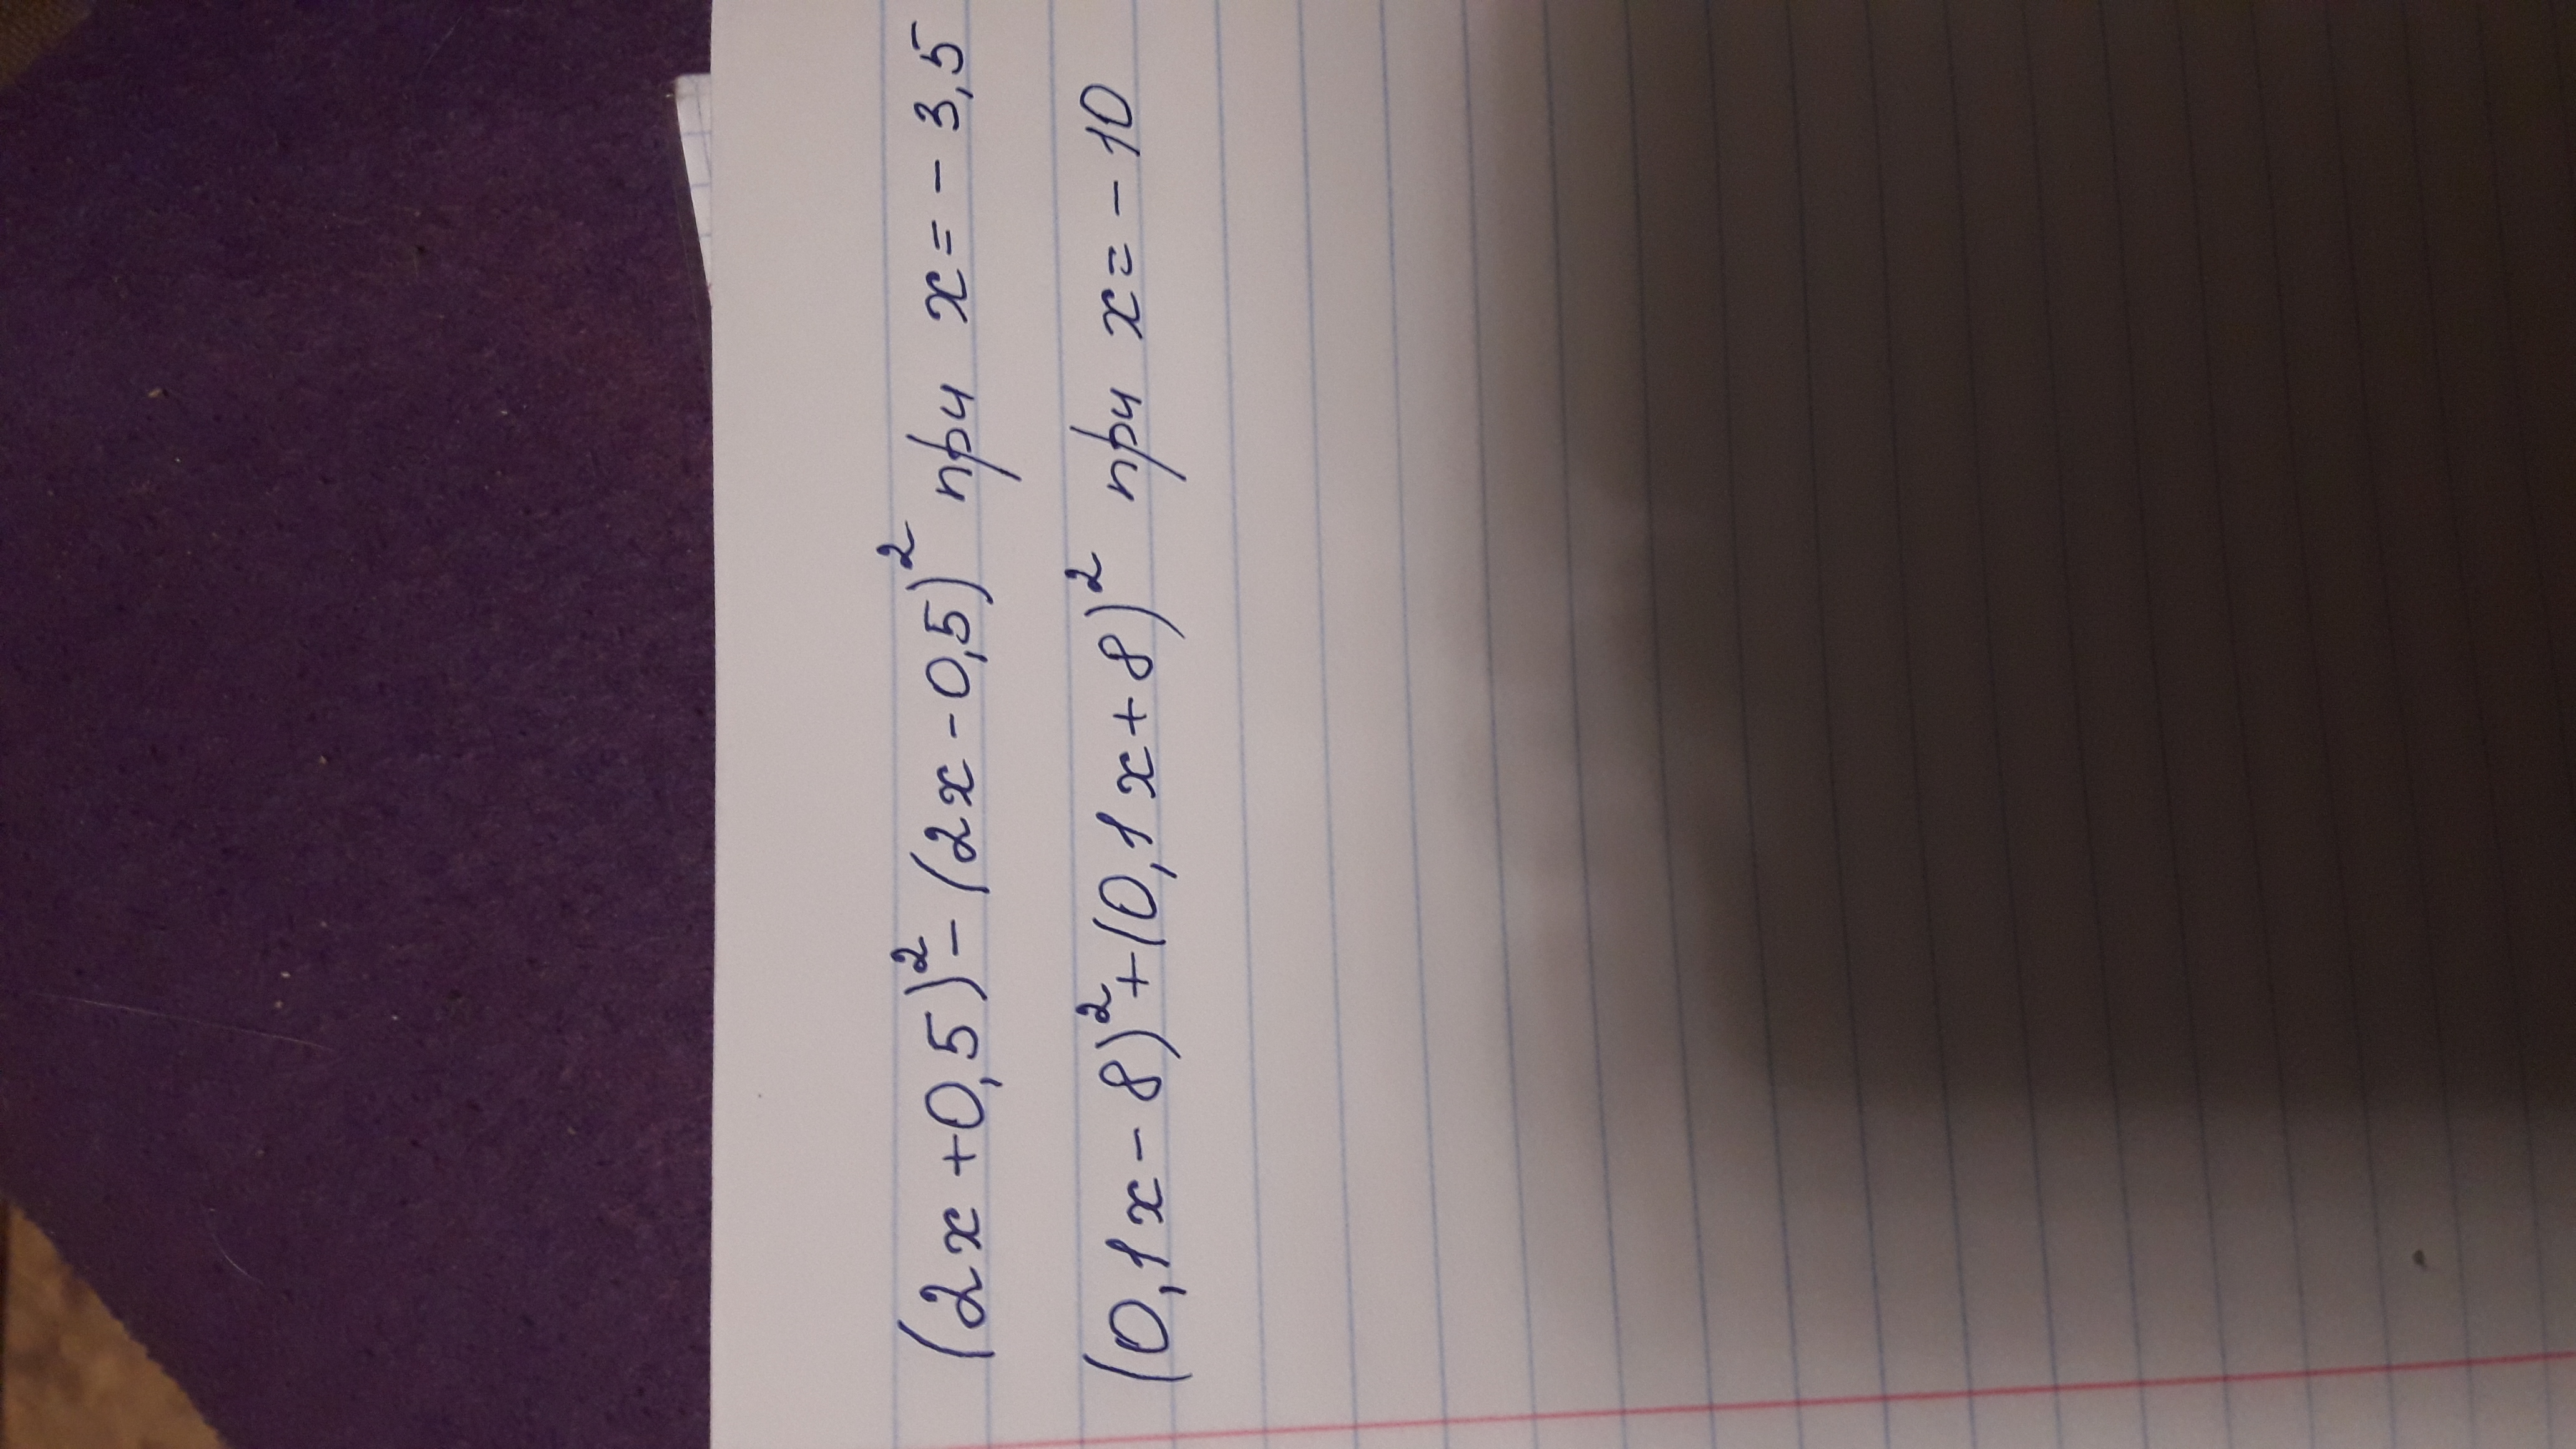 (2x+0,5)²-(2x-0,5)² при x=-3,5
(0,1x-8)²+(0,1x+8)² при x=-10